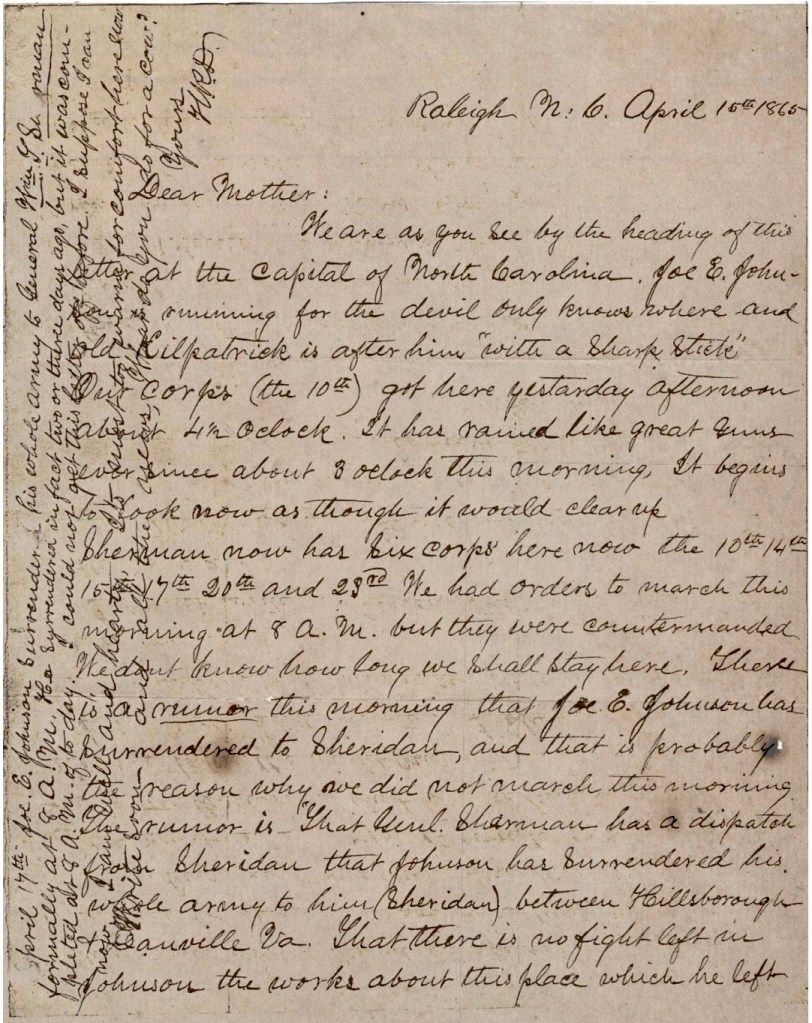 Raleigh N. C. April 15th 1865
Dear Mother:
We are as you see by the heading of this
letter at the Capital of North Carolina. Joe E. John-
son is running for the devil only knows where and
old Kilpatrick is after him "with a Sharp Stick"
Our Corps (the 10th) got here yestarday afternoon
about 4 Oclock. It has rained like great Guns
ever since about 3 oclock this morning, It begins
to look now as though it would clear up
Sherman now has Six corps here now the 10th 14th
15th 17th 20th and 23rd We had orders to march this
morning at 8 A. M. but they were countermanded
We dont know how long we Shall Stay here. There
is a rumor this morning that Joe E. Johnson has
Surrendered to Sheridan, and that is probably
the reason why we did not march this morning
The rumor is That Genl. Sherman has a dispatch
from Sheridan that Johnson has Surrendered his
whole army to him (Sheridan) between Hillsborough
& Danville Va. That there is no fight left in
Johnson the works about this place which he left
April 17th Joe. E. Johnson Surrendered his whole army to General Wm T. Sherman
formally at 8 A. M. He Syrrendered in fact two or three days ago, but it was com-
pleted at 8 A. M. of to day. I could not get this letter off before. I Suppose I can
now. I am well and hearty. It is most to warm for comfort here now
Write soon and all the news, What do you do for a cow?
Yours
H.R.D.